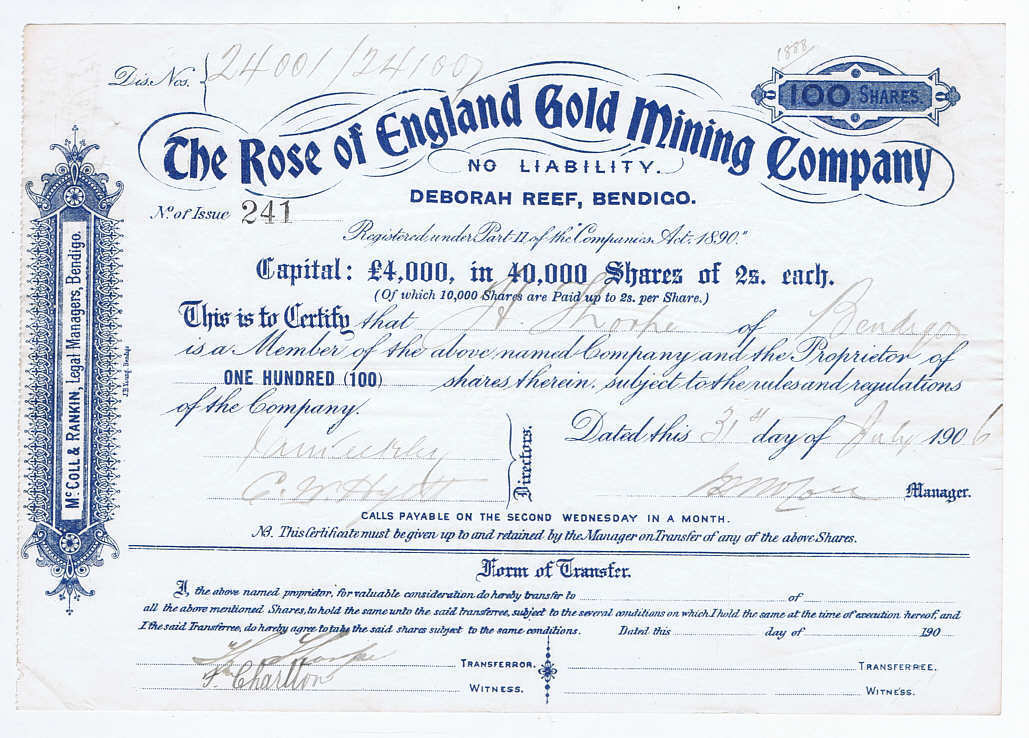 1888
Dis. Nos. 24001/24100
100 SHARES.
The Rose of England Gold Mining Company
NO LIABILITY.
DEBORAH REEF, BENDIGO.
No. of Issue 241
Registered under Part II of the "Companies Act, 1890."
Capital: £4,000, in 40,000 Shares of 2s. each.
(Of which 10,000 Shares are Paid up to 2s. per Share.)
This is to Certify that H. Thorpe of Bendigo
is a Member of the above named Company and the Proprietor of
ONE HUNDRED (100) shares therein, subject to the rules and regulations
of the Company.
Dated this 31st day of July 1906
Directors.
Manager.
CALLS PAYABLE ON THE SECOND WEDNESDAY IN A MONTH.
NB. This Certificate must be given up to and retained by the Manager on Transfer of any of the above Shares.
McCOLL & RANKIN, Legal Managers, Bendigo.
Form of Transfer.
I, the above named proprietor, for valuable consideration do hereby transfer to of
all the above mentioned Shares, to hold the same unto the said transferee, subject to the several conditions on which I hold the same at the time of execution hereof, and
I the said Transferree, do hereby agree to take the said shares subject to the same conditions. Dated this day of 190
H Thorpe TRANSFERROR. TRANSFERREE.
F. Charlton WITNESS. WITNESS.